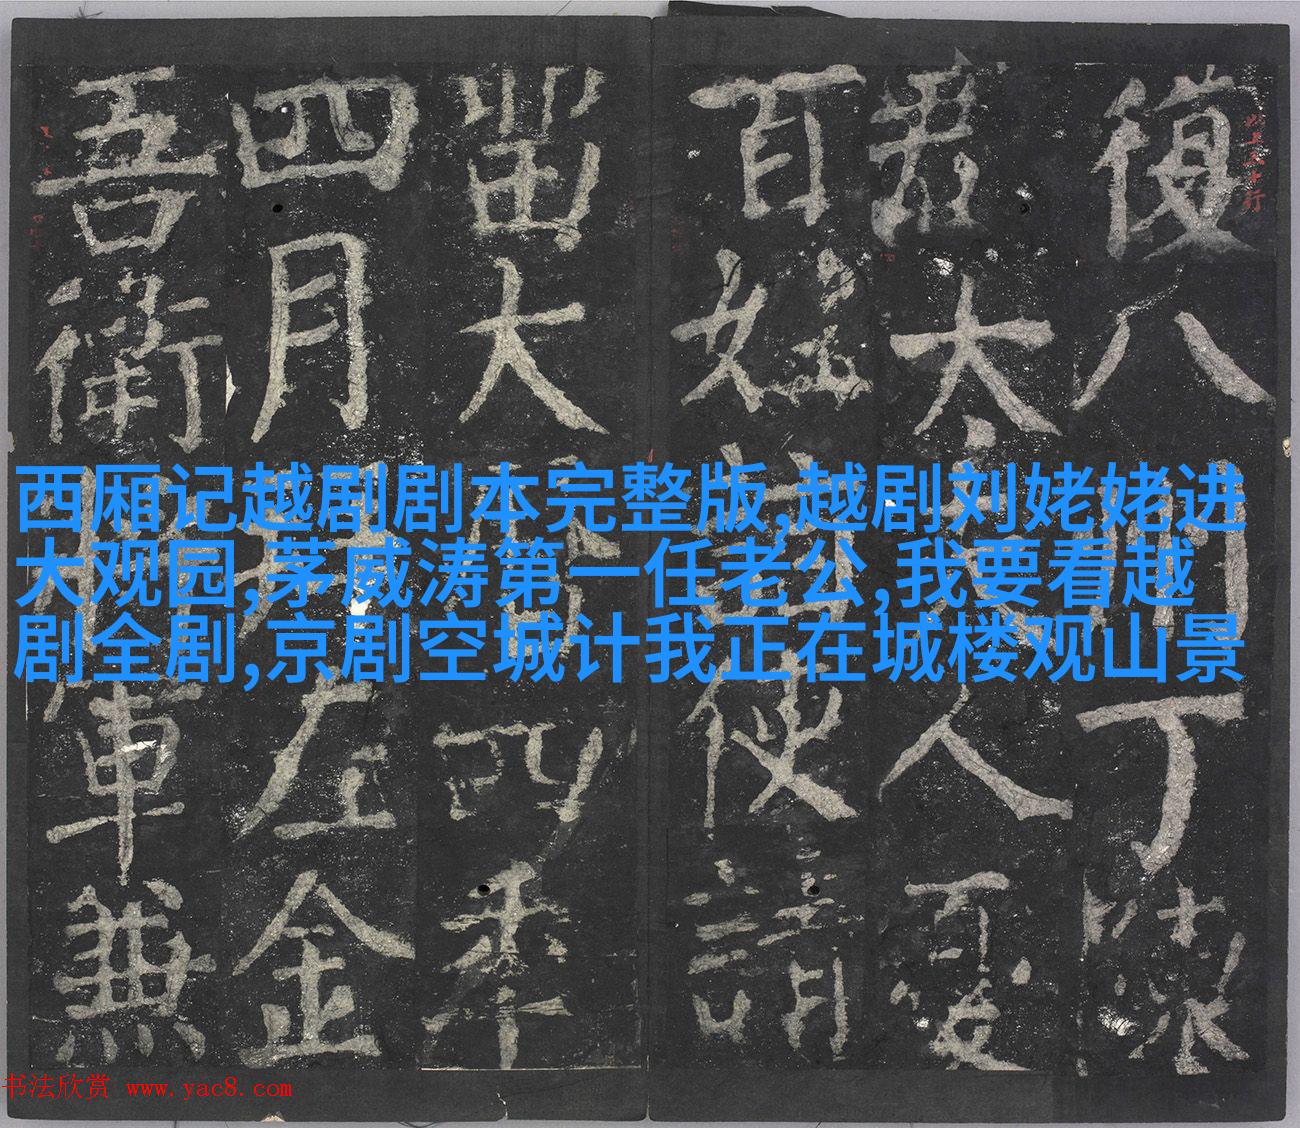 西厢记越剧剧本完整版,越剧刘姥姥进
大观园,茅威涛第一任老公,我要看越
剧全剧,京剧空城计我正在城楼观山景
復八丁
太人
百姓使請
留大四年
四月左金
吾衛軍兼
书法欣赏 www.yac8.com